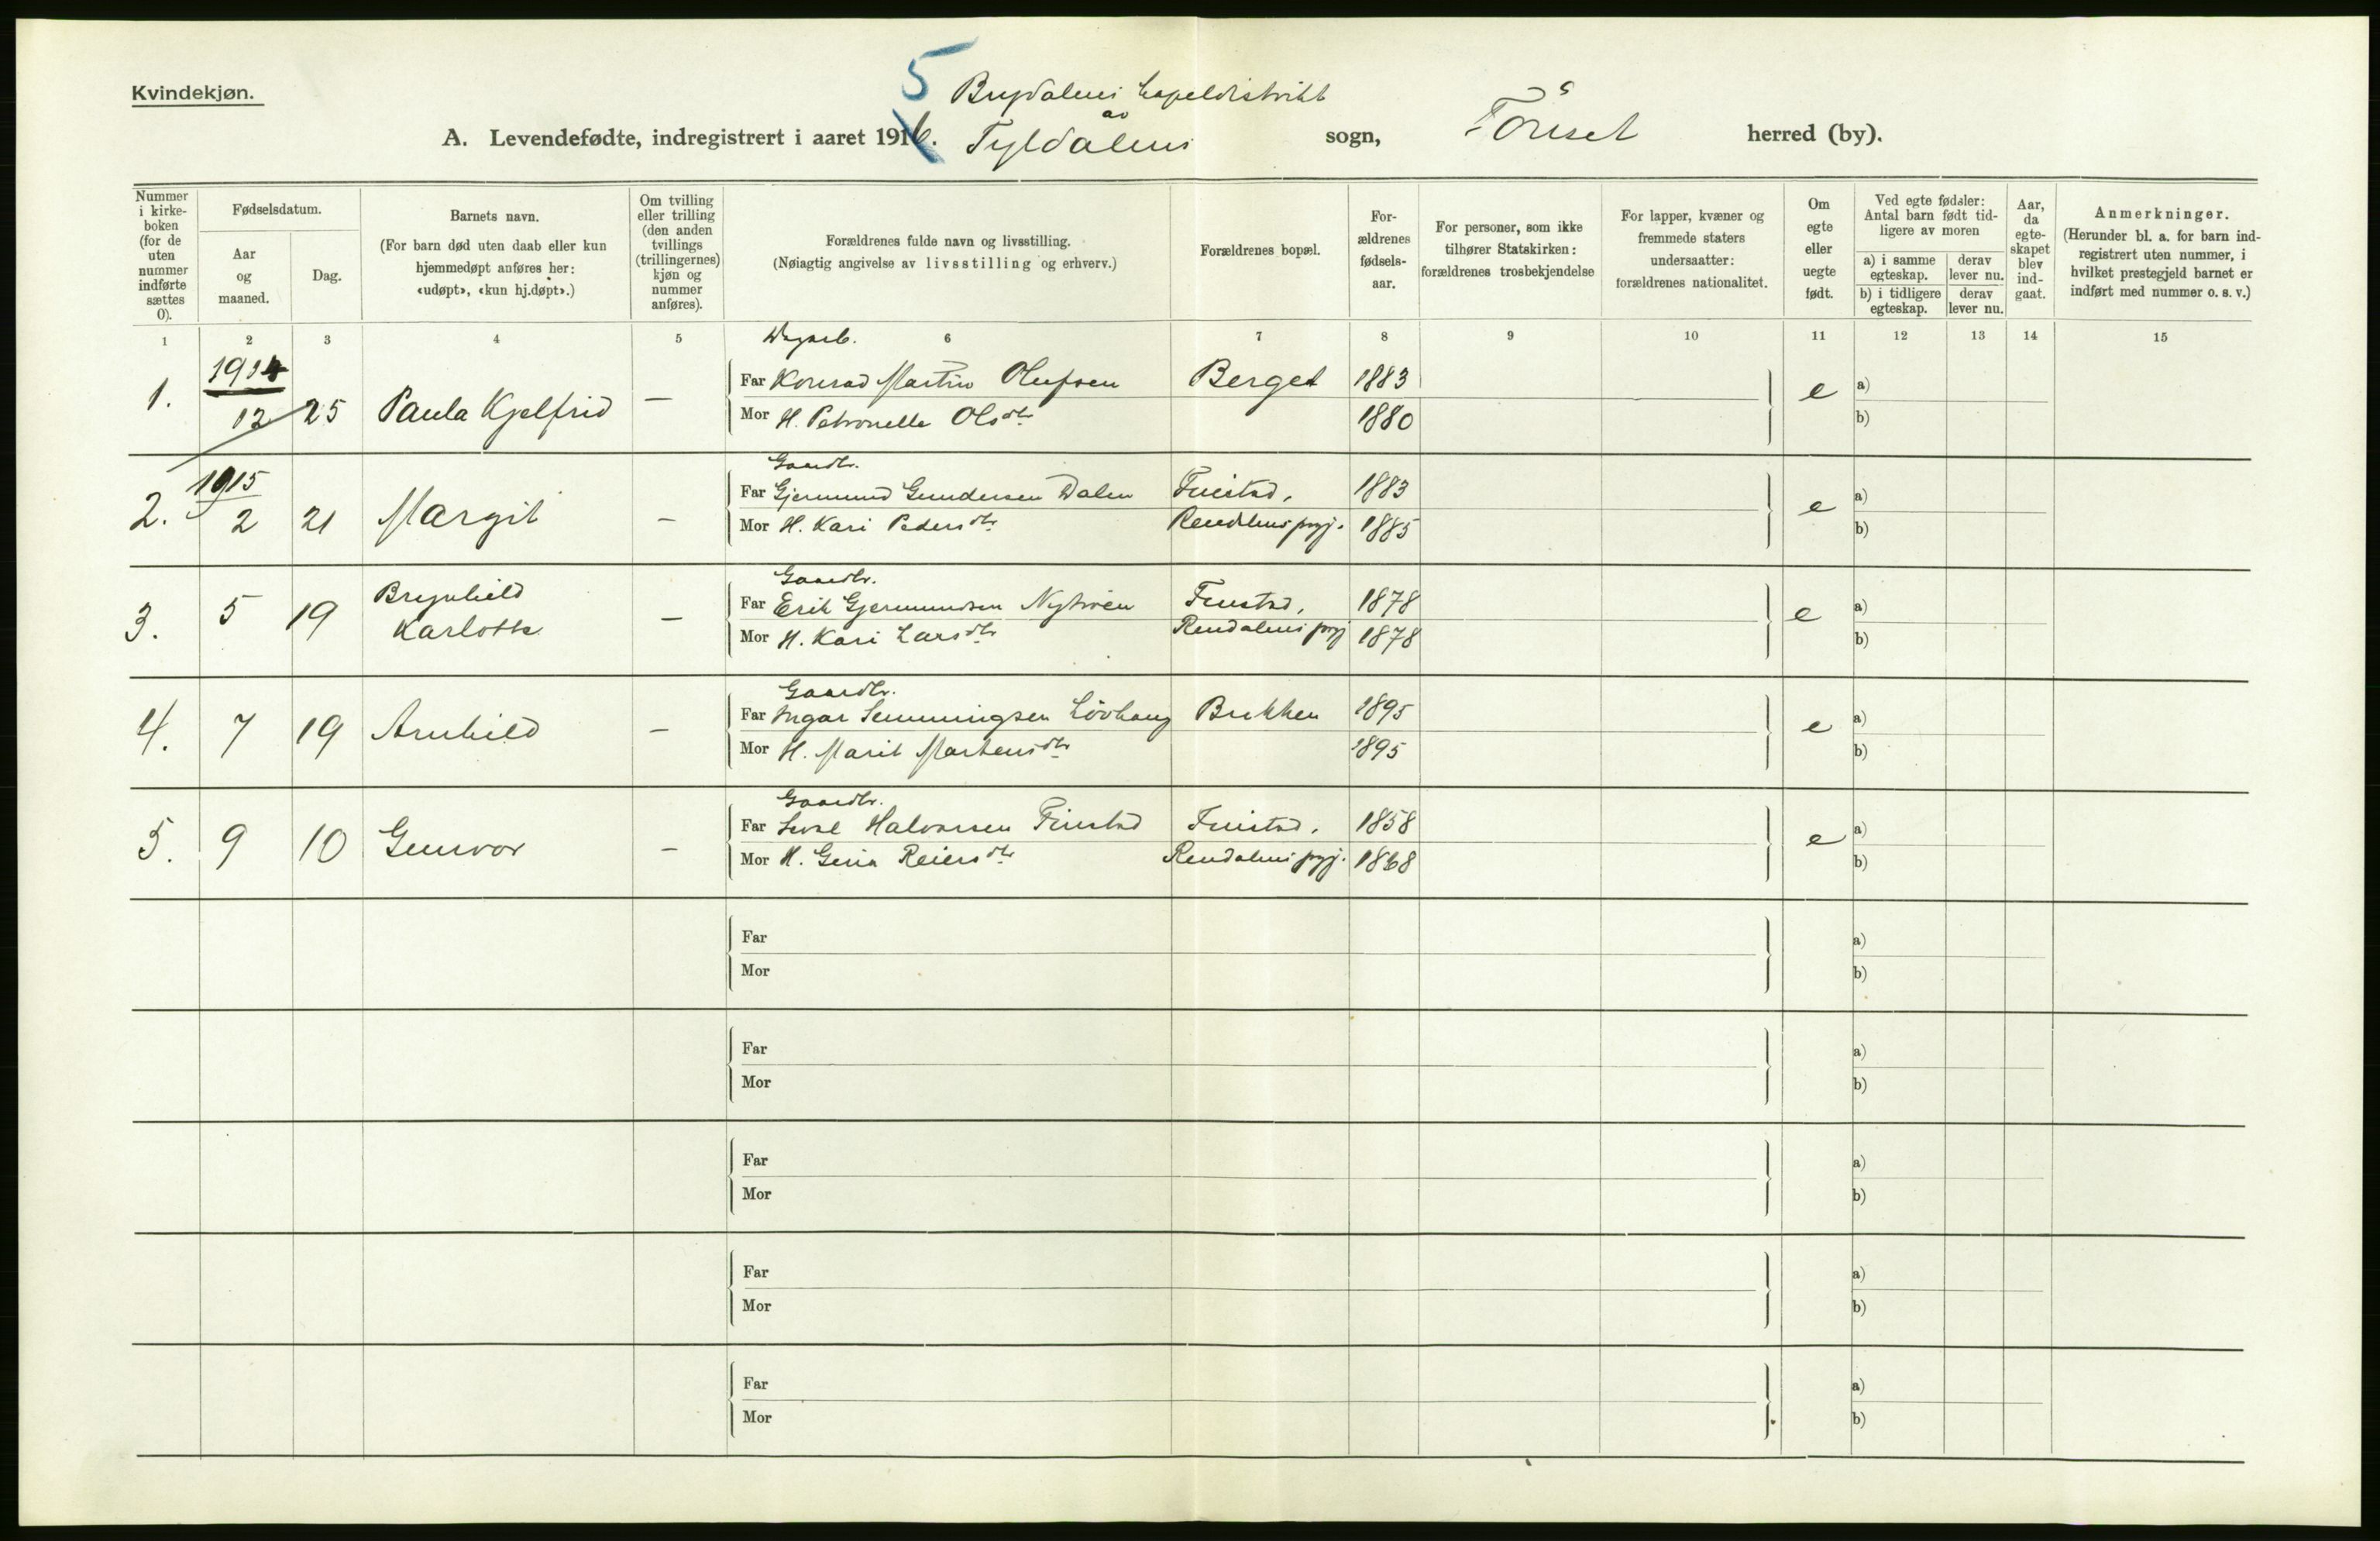 Kvindekjøn.
5
Brydalens kapeldistrikt
av
A. Levendefødte, indregistrert i aaret 1916. Tyldalens sogn, Tönset herred (by).
Nummer i kirke-boken (for de uten nummer indførte sættes 0).
Fødselsdatum.
Aar og maaned.
Dag.
Barnets navn.
(For barn død uten daab eller kun hjemmedøpt anføres her: «udøpt», «kun hj.døpt».)
Om tvilling eller trilling (den anden tvillings (trillingernes) kjøn og nummer anføres).
Forældrenes fulde navn og livsstilling.
(Nøiagtig angivelse av livsstilling og erhverv.)
Forældrenes bopæl.
For-ældrenes fødsels-aar.
For personer, som ikke tilhører Statskirken: forældrenes trosbekjendelse
For lapper, kvæner og fremmede staters undersaatter: forældrenes nationalitet.
Om egte eller uegte født.
Ved egte fødsler: Antal barn født tid-ligere av moren
a) i samme egteskap.
derav lever nu.
b) i tidligere egteskap.
derav lever nu.
Aar, da egte-skapet blev ind-gaat.
Anmerkninger.
(Herunder bl. a. for barn ind-registrert uten nummer, i hvilket prestegjeld barnet er indført med nummer o. s. v.)
1 2 3 4 5 6 7 8 9 10 11 12 13 14 15
1914
1. 12 25 Paula Kjelfrid —
Far Konrad Martin Olufsen Berget 1883 e a)
Mor H. Petronelle Olsdtr 1880 b)
1915
2. 2 21 Margit –
Gaardbr.
Far Gjermund Gundersen Dalen Finstad, 1883 e a)
Mor H. Kari Pedersdtr Rendalens prgj. 1885 b)
3. 5 19 Brynhild Karlotte –
Gaardbr.
Far Erik Gjermundsen Nytrøen Finstad, 1878 e a)
Mor H. Kari Larsdtr Rendalens prgj 1878 b)
4. 7 19 Arnhild –
Gaardbr.
Far Ingar Semmingsen Lövhaug Brekken 1895 e a)
Mor H. Marit Martensdtr 1895 b)
5. 9 10 Gunvor –
Gaardbr.
Far Halvorsen Finstad Finstad, 1858 e a)
Mor H. Gina Reiersdtr Rendalens prgj. 1868 b)
Far a)
Mor b)
Far a)
Mor b)
Far a)
Mor b)
Far a)
Mor b)
Far a)
Mor b)